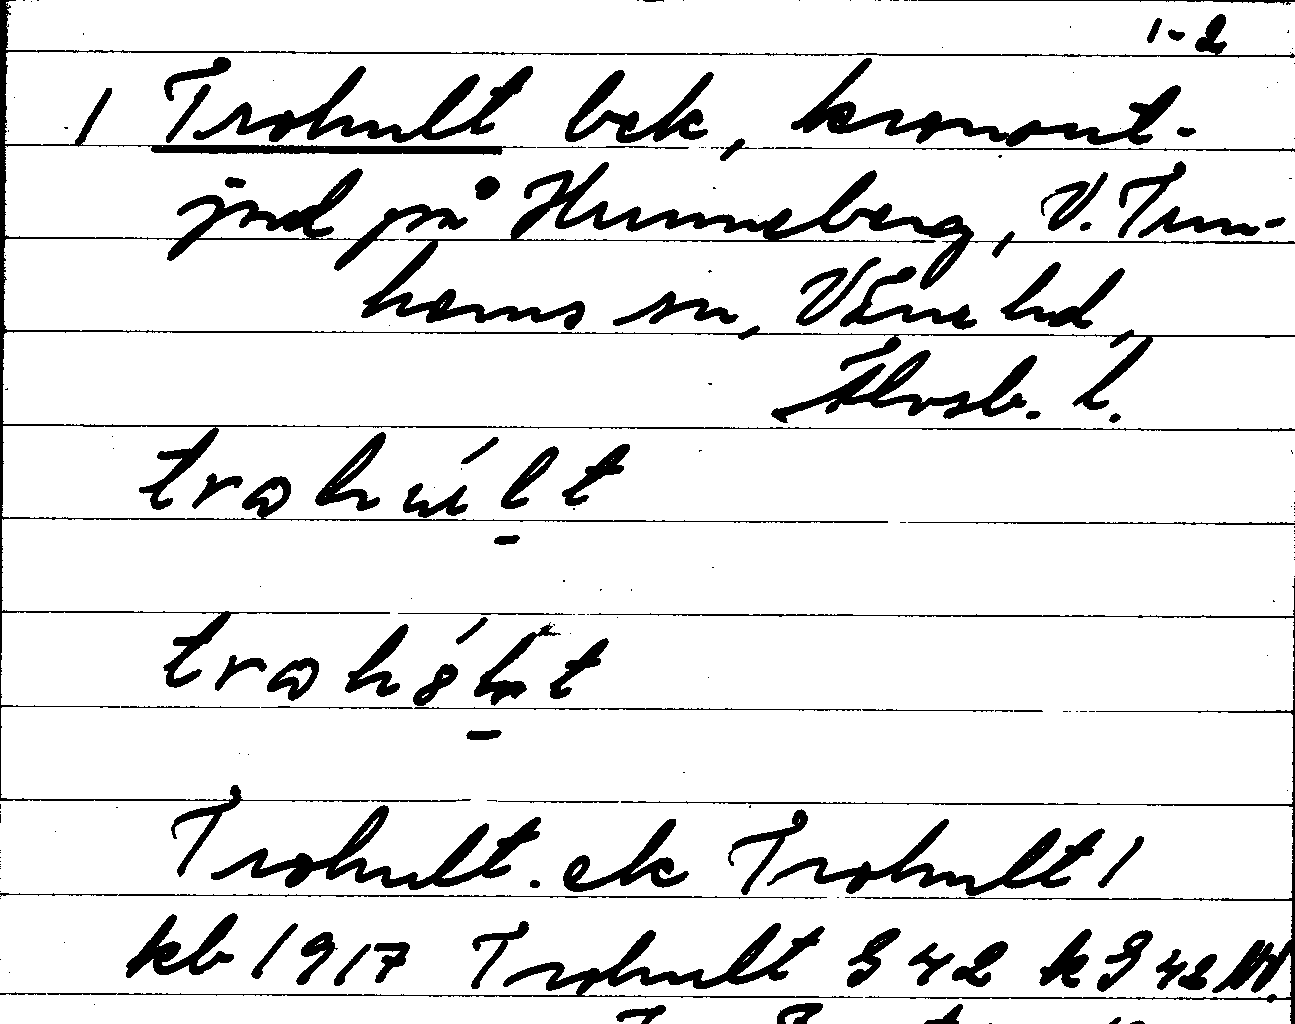 1-2
/ Trohult bek, kronout-
jord på Hunneberg, V. Tun-
hems sn, Väne hd,
Älvsb. l.
trohúlt
trohólt
Trohult. ek Trohult /
kb 1917 Trohult G 42 k G 42